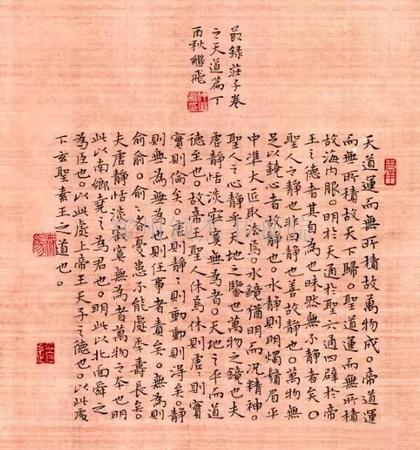 節錄莊子卷
之天道篇丁
酉秋繼飛
天道運而無所積故萬物成。帝道運
而無所積故天下歸。聖道運而無所積
故海內服。明於天通於聖六通四辟於帝
王之德者其自為也昧然無不靜者矣。
聖人之靜也非曰靜也善故靜也。萬物無
足以鐃心者故靜也。水靜則明燭鬚眉平
中准大匠取焉。水鏡猶明而況精神。
聖人之心靜乎天地之鑒也萬物之鏡也夫
虛靜恬淡寂寞無為者。天地之平而道
德之至也。故帝聖人休焉休則虛〻則實
實則倫矣。虛則靜〻則動動則得矣。靜
則無為無為也則任事者責矣。無為則
俞俞〻者憂患不能處年壽長矣。
夫虛靜恬淡寂寞無為者萬物之本也明
此以南鄉堯之為君也。明此以北面舜之
為臣也。以此處上帝王天子之德也。以此處
下玄聖素王之道也。